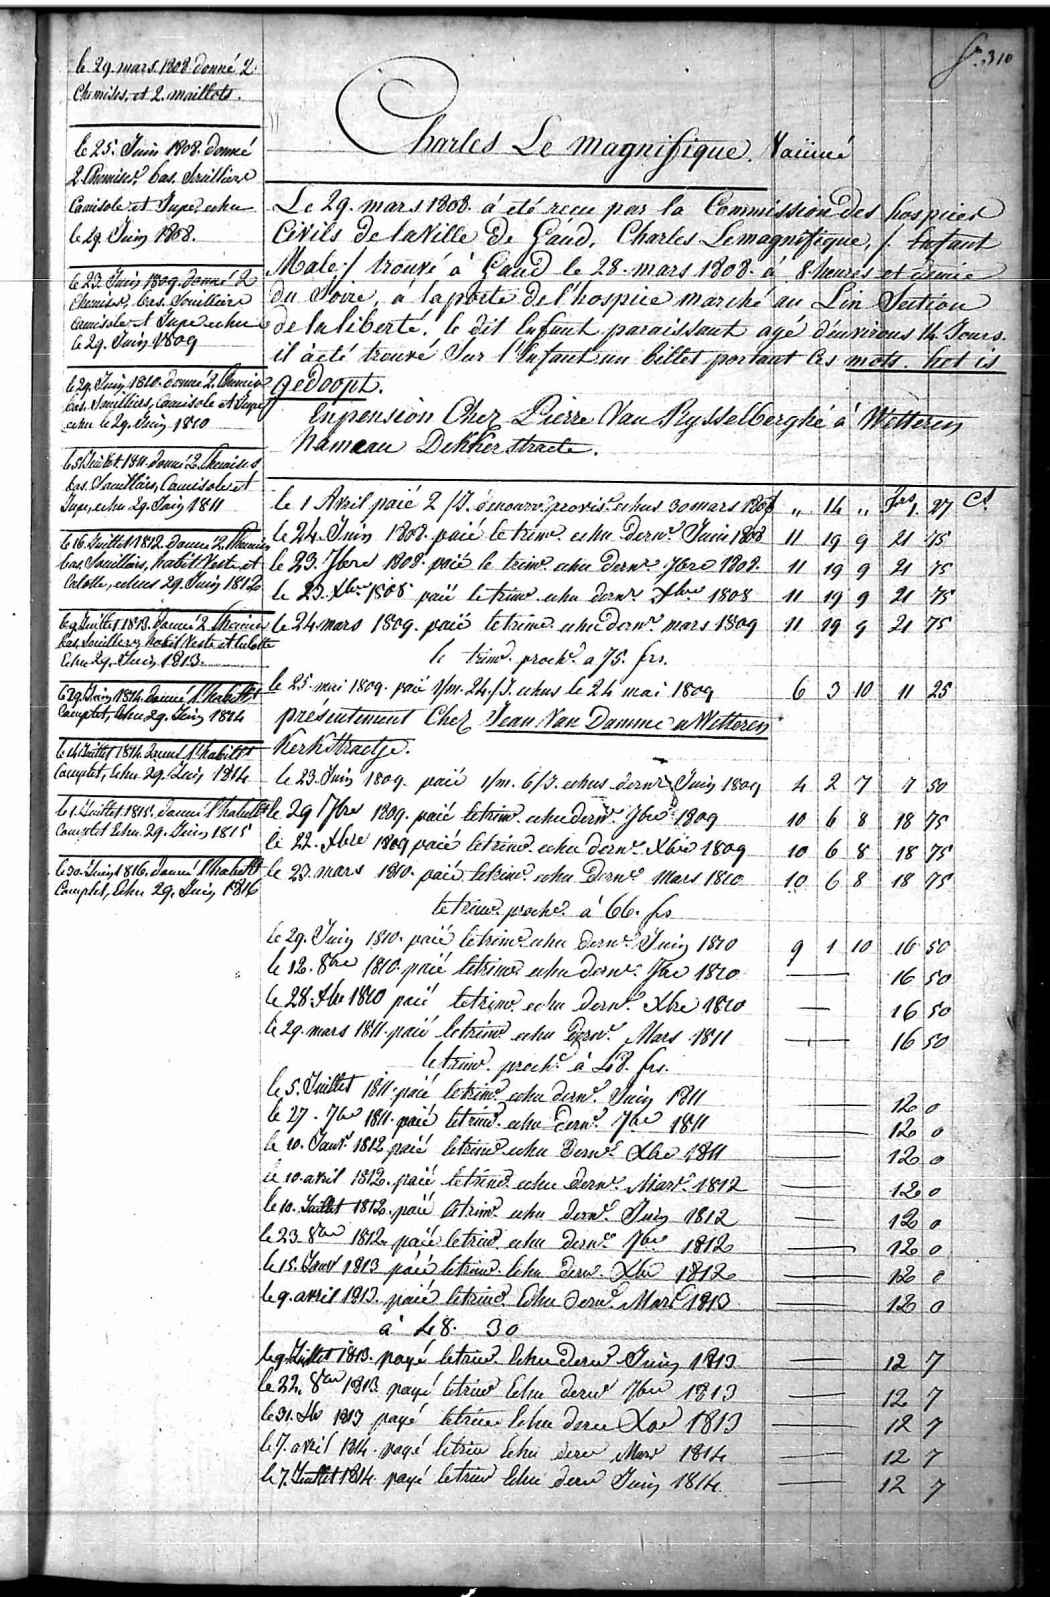 f.o 310
le 29. mars. 1808 donné 2
Chemises, et 2. maillots.
le 25. Juin 1808. donné
2 Chemises. bas. Soulliers
Camisole et Jupe echu
le 29 Juin 1808.
le 23. Juin 1809 donné 2
Chemises. bas. Soulliers
Camisole et Jupe echu
le 29. Juin 1809
le 29. Juin 1810. donné 2. Chemises
bas. Soulliers, Camisole et Jupe
echu le 29. Juin 1810
le 5. Juillet 1811. donné 2. Chemises
bas. Soulliers, Camisole et
Jupe, echu 29. Juin 1811
le 16. Juillet 1812. donné 2. Chemises
bas. Soulliers, habit Veste et
Culotte, echus 29. Juin 1812
le 9 Juillet 1813. donné 2 Chemises
bas, Soulliers habit Veste et Culotte
Echu 29. Juin 1813.
le 29. Juin 1814 donné l'habillt
Complet, Echu 29. Juin 1814
le 14 Juillet 1814 donné l'habillt
Complet, Echu 29. Juin 1814
le 1. Juillet 1815. donné l'habillt
Complet Echu 29. Juin 1815
le 30 Juin 1816. donné l'habillt
Complet, Echu 29. Juin 1816
Charles Le magnifique. Vaciné
Le 29. mars 1808. á eté recu par la Commission des hospices
Civils de la Ville de Gand, Charles Lemagnifique, /. Enfant
Male ·/ trouvé à Gand le 28. mars 1808. á 8 heures et demie
du Soire, á la porte de l'hospice marché au Lin Section
de la liberté. le dit Enfant paraissant agé d'environs 14 Jours.
il á eté trouvé Sur l'Enfant un billet portant Ces mots. het is
gedoopt.
En pension Chez Pierre Van Rysselberghé á Wetteren
hameau Dekkerstraete.
le 1 Avril paié 2 /J. provis. echus 30 mars 1808 " 14 " frs 1. 27 Cs.
le 24. Juin 1808. paié le trim. echu dern. Juin 1808 11 19 9 21 75
le 23. 7bre 1808. paié le trim. echu dern. 7bre 1808. 11 19 9 21 75
le 23. Xbre 1808 paié le trim. echu dern. Xbre 1808 11 19 9 21 75
le 24 mars 1809. paié le trim. echu dern. mars 1809 11 19 9 21 75
le trim. proch. a 75. frs.
le 25. mai 1809. paié 1/m. 24./J. echus le 24 mai 1809 6 3 10 11 25
présentement Chez Jean Van Damme a Wetteren
Kerkstraetje.
le 23. Juin 1809. paié 1/m. 6/J. echus dern. Juin 1809 4 2 7 7 50
le 29 7bre 1809. paié le trim. echu dern. 7bre 1809 10 6 8 18 75
le 22. Xbre 1809 paié le trim. echu dern. Xbre 1809 10 6 8 18 75
le 23. mars 1810. paié le trim. echu dern. Mars 1810 10 6 8 18 75
le trim. proch. á 66. frs
le 29. Juin 1810. paié le trim. echu dern. Juin 1810 9 1 10 16 50
le 12. 8bre 1810. paié le trim. echu dern. 7bre 1810 — 16 50
le 28 Xbre 1810 paié le trim. echu dern. Xbre 1810 — 16 50
le 29. mars 1811. paié le trim. echu dern. Mars 1811 — 16 50
le trim. proch. á 48. frs.
le 5. Juillet 1811. paié le trim. echu dern. Juin 1811 — 12 0
le 27. 7bre 1811. paié le trim. echu dern. 7bre 1811 — 12 0
le 10. Janv. 1812 paié le trim. echu dern. Xbre 1811 — 12 0
le 10. avril 1812. paié le trim. echu dern. Mars. 1812 — 12 0
le 10. Juillet 1812. paié le trim. echu dern. Juin 1812 — 12 0
le 23. 8bre 1812. paié le trim. echu dern. 7bre 1812 — 12 0
le 15. Janv 1813 páié le trim. Echu dern. Xbre 1812 — 12 0
le 9. avril 1813. paié le trim. Echu dern. Mars 1813 — 12 0
á 48. 30
le 9. Juillet 1813. payé le trim. Echu dern Juin 1813 — 12 7
le 22. 8bre 1813. payé le trim Echu dern 7bre 1813 — 12 7
le 31. Xbre 1813 payé le trim Echu dern Xbre 1813 — 12 7
le 7. avril 1814. payé le trim Echu dern Mars 1814 — 12 7
le 7. Juillet 1814. payé le trim Echu dern Juin 1814 — 12 7